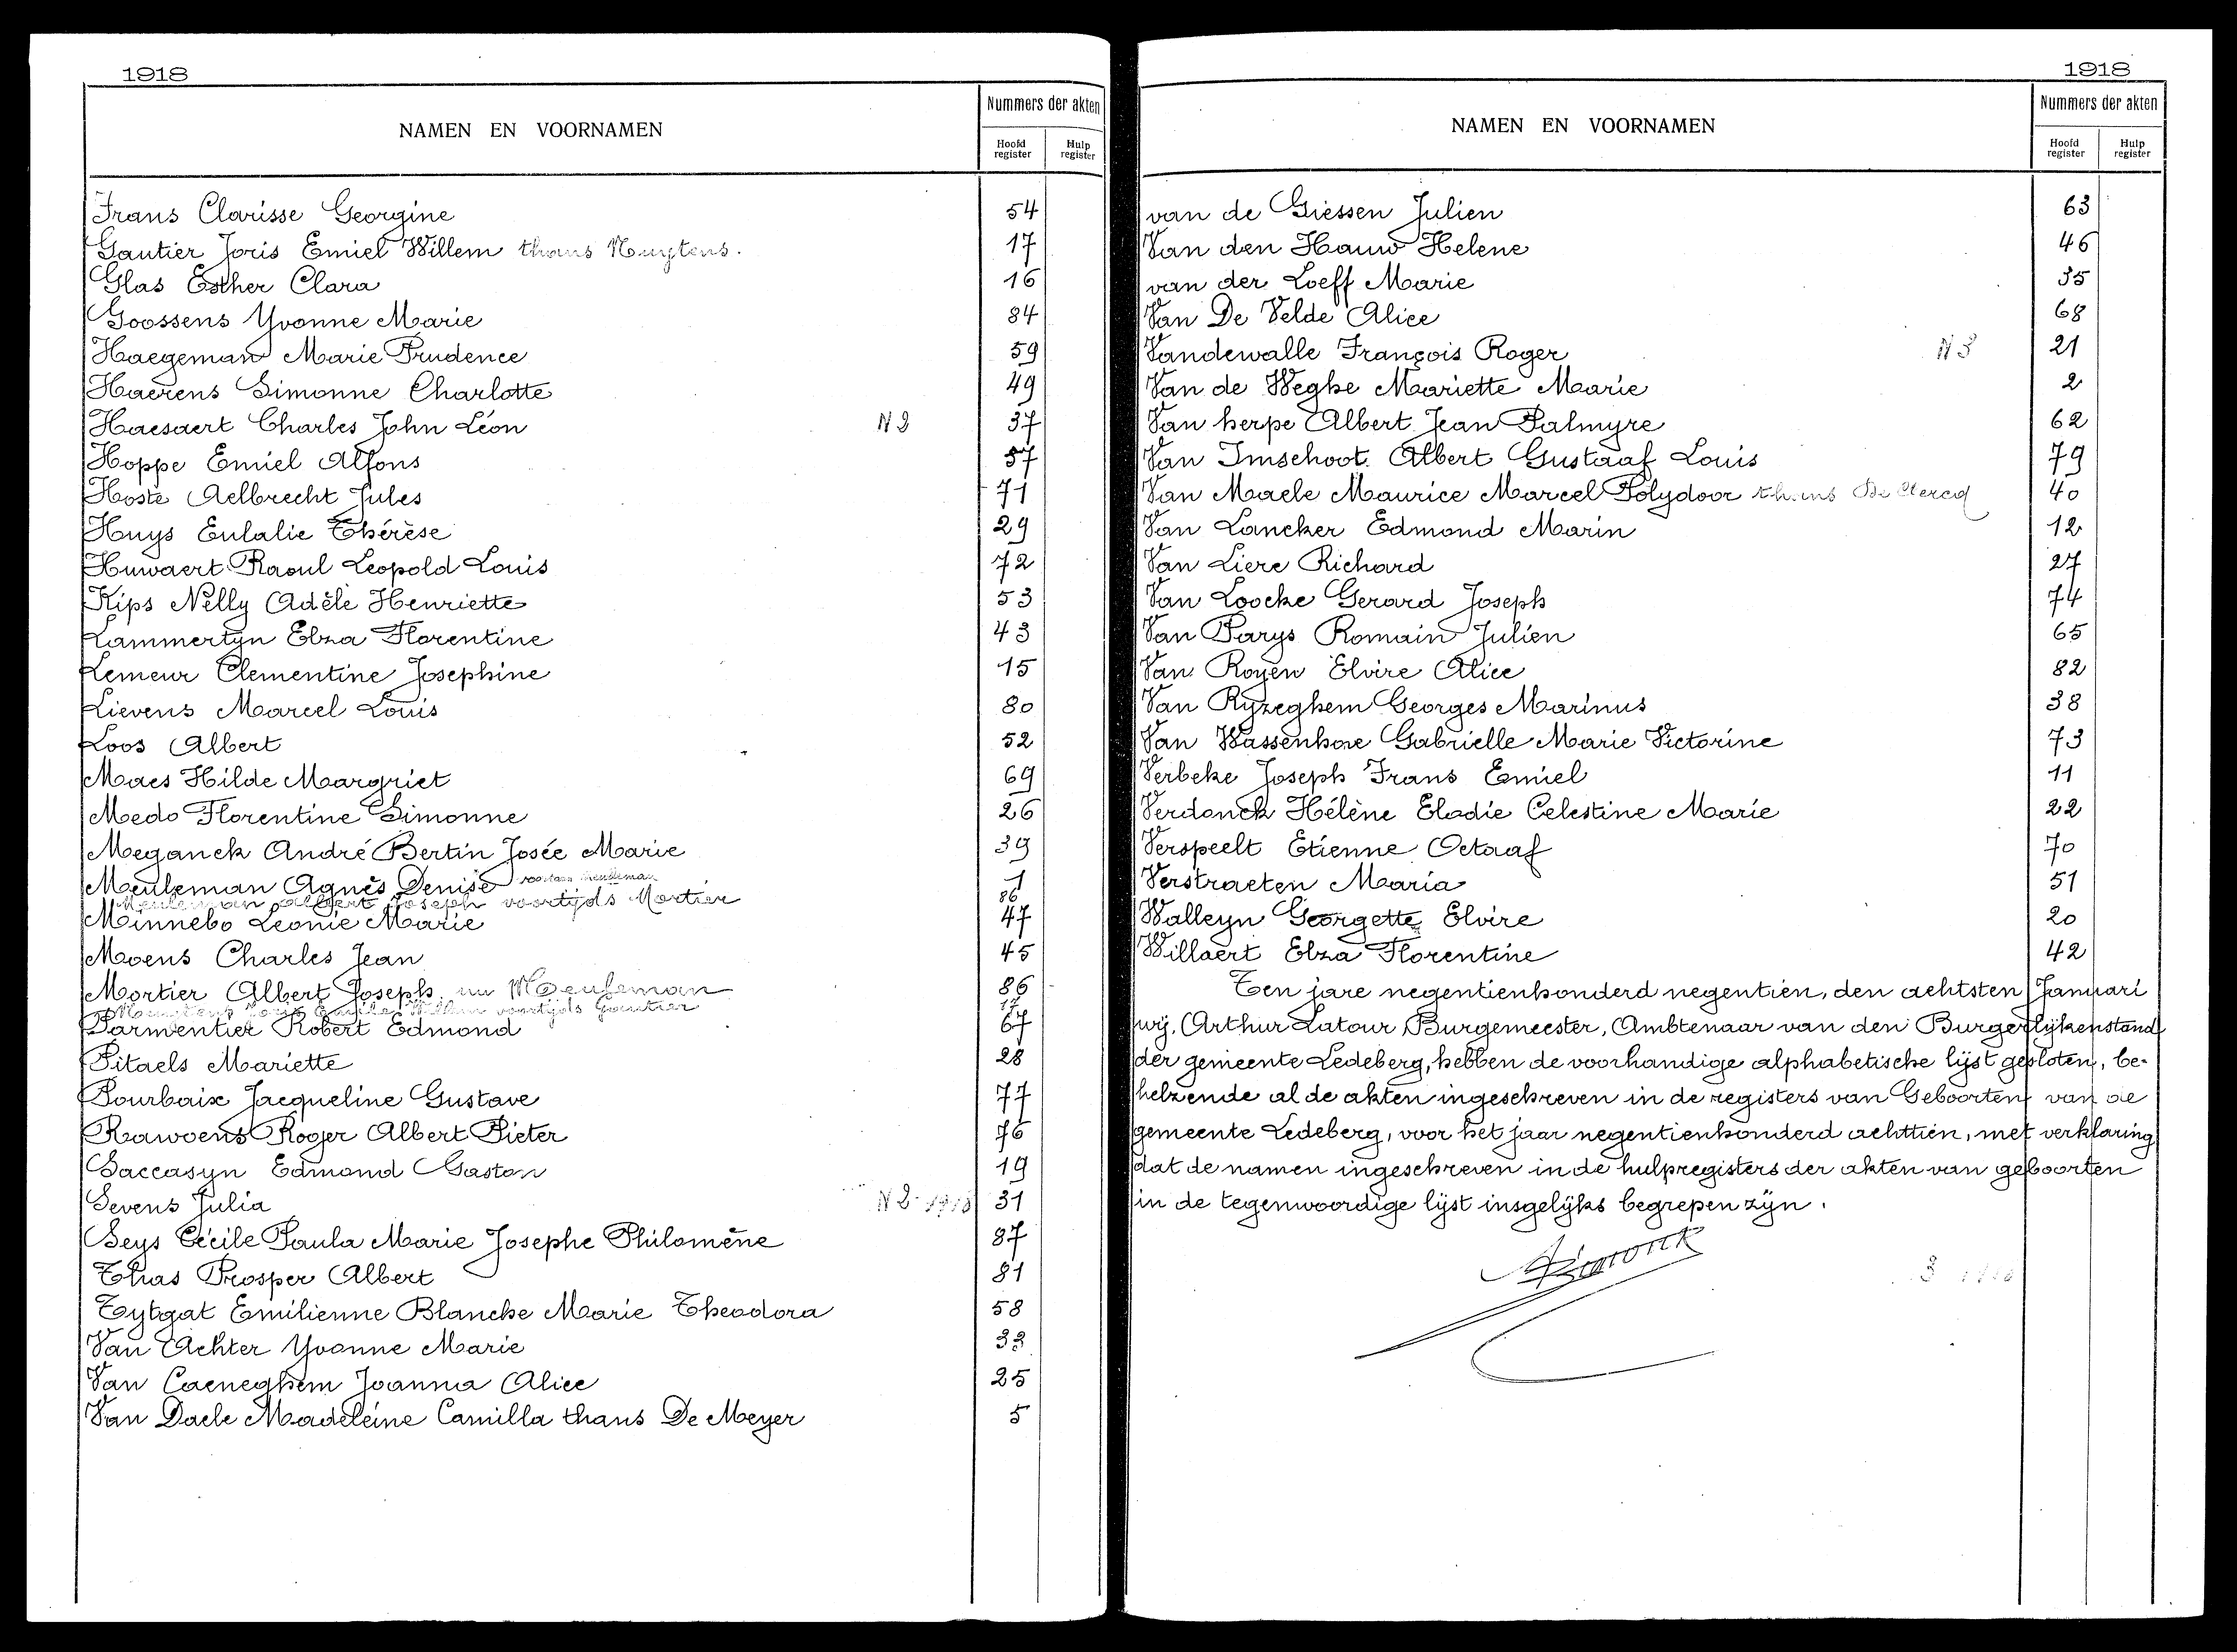 1918
NAMEN EN VOORNAMEN
Nummers der akten
Hoofd register
Hulp register
Frans Clarisse Georgine 54
Gautier Joris Emiel Willem thans Nuytens. 17
Glas Esther Clara 16
Goossens Yvonne Marie 84
Haegeman Marie Prudence 59
Haerens Simonne Charlotte 49
Haesaert Charles John Léon N 2 37
Hoppe Emiel Alfons 57
Hoste Aelbrecht Jules 71
Huys Eulalie Thérèse 29
Huwaert Raoul Leopold Louis 72
Kips Nelly Adèle Henriette 53
Lammertyn Elza Florentine 43
Lemeur Clementine Josephine 15
Lievens Marcel Louis 80
Loos Albert 52
Maes Hilde Margriet 69
Medo Florentine Simonne 26
Meganck André Bertin Josée Marie 39
Meuleman Agnès Denise 1
Meuleman Albert Joseph voortijds Mortier 86
Minnebo Leonie Marie 47
Moens Charles Jean 45
Mortier Albert Joseph nu Meuleman 86
Nuytens Joris Emiel Willem voortijds Gautier 17
Parmentier Robert Edmond 67
Pitaels Mariette 28
Pourbaix Jacqueline Gustave 77
Rawoens Roger Albert Pieter 76
Saccasyn Edmond Gaston 19
Sevens Julia N 2 1918 31
Seys Cécile Paula Marie Josephe Philomène 87
Thas Prosper Albert 81
Tytgat Emilienne Blanche Marie Theodora 58
Van Achter Yvonne Marie 33
Van Caeneghem Joanna Alice 25
Van Daele Madeleine Camilla thans De Meyer 5
1918
NAMEN EN VOORNAMEN
Nummers der akten
Hoofd register
Hulp register
van de Giessen Julien 63
Van den Hauw Helene 46
van der Loeff Marie 35
Van De Velde Alice 68
Vandewalle François Roger N 3 21
Van de Weghe Mariette Marie 2
Van herpe Albert Jean Palmyre 62
Van Imschoot Albert Gustaaf Louis 79
Van Maele Maurice Marcel Polydoor thans De Clercq 40
Van Lancker Edmond Marin 12
Van Liere Richard 27
Van Loocke Gerard Joseph 74
Van Parys Romain Julien 65
Van Royen Elvire Alice 82
Van Ryzeghem Georges Marinus 38
Van Wassenhove Gabrielle Marie Victorine 73
Verbeke Joseph Frans Emiel 11
Verdonck Hélène Elodie Celestine Marie 22
Verspeelt Etienne Octaaf 70
Verstraeten Maria 51
Walleyn Georgette Elvire 20
Willaert Elza Florentine 42
Ten jare negentienhonderd negentien, den achtsten Januari
wij, Arthur Latour, Burgemeester, Ambtenaar van den Burgerlijkenstand
der gemeente Ledeberg, hebben de voorhandige alphabetische lijst gesloten, be-
helzende al de akten ingeschreven in de registers van Geboorten van de
gemeente Ledeberg, voor het jaar negentienhonderd achttien, met verklaring
dat de namen ingeschreven in de hulpregisters der akten van geboorten
in de tegenwoordige lijst insgelijks begrepen zijn.